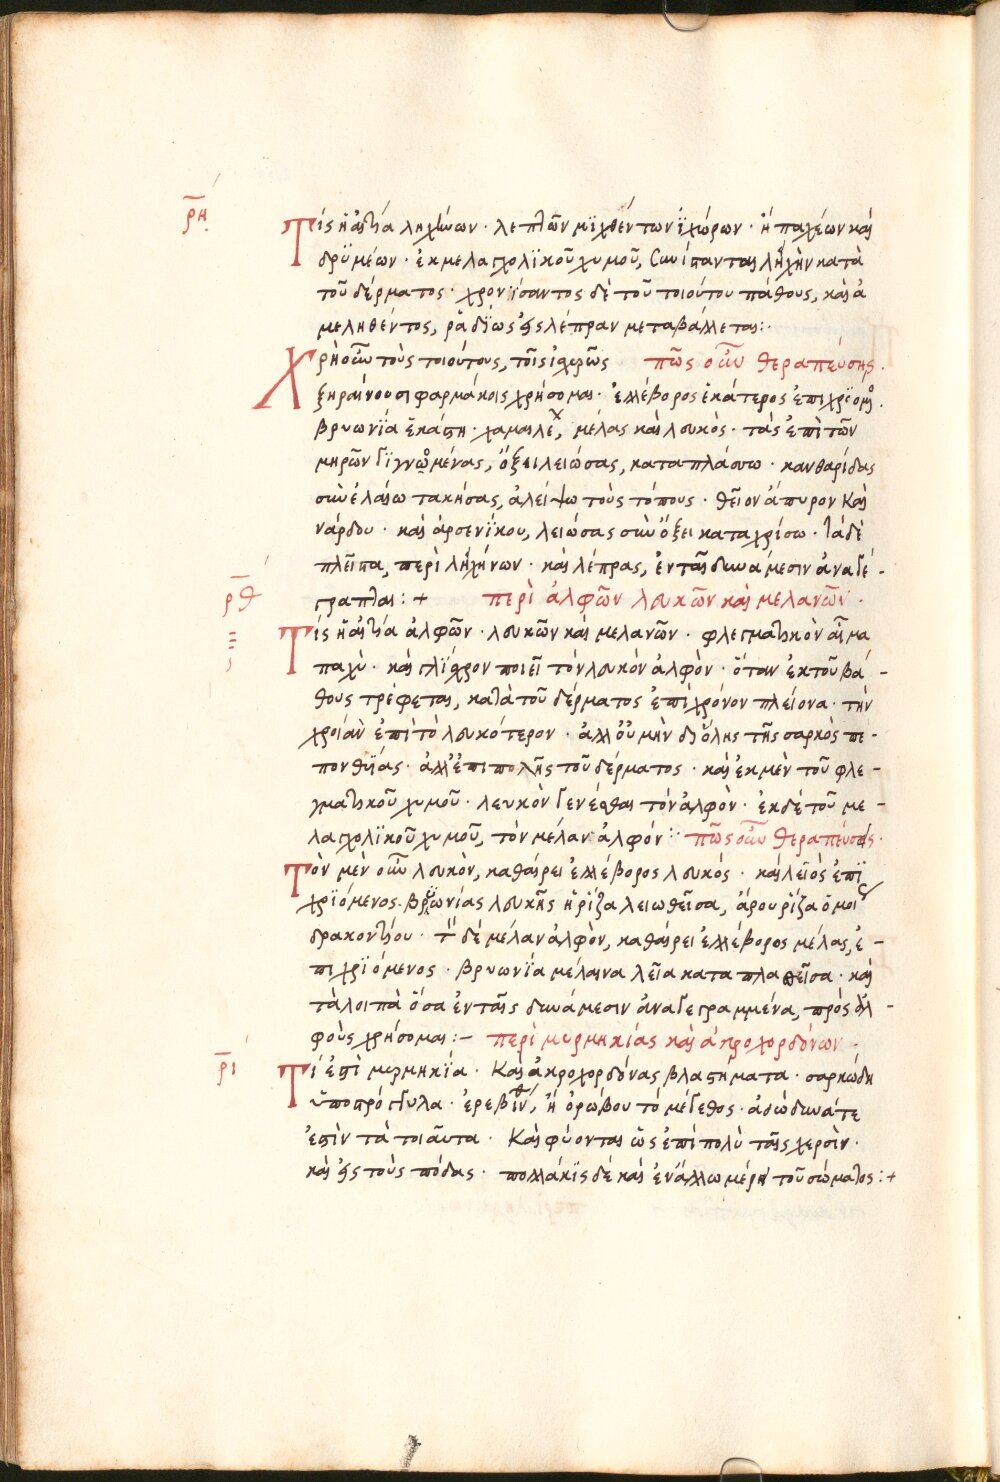 ρη
Τίς ἡ αἰτία ληχήνων · λεπτῶν μϊχθέντων ἰχώρων · ἢ παχέων καὶ
δρϋμέων · ἐκ μελαγχολϊκοῦ χυμοῦ, συνίπανται λήχην κατὰ
τοῦ δέρματος · χρονΐσαντος δὲ τοῦ τοιούτου πάθους, καὶ ἀ
μεληθέντος, ῥᾳδΐως εἰς λέπραν μεταβάλλεται :·
Χρὴ οὖν τοὺς τοιούτους, τοῖς ἰσχυρῶς πῶς οὖν θεραπεύσης ·
ξηραίνουσι φαρμάκοις χρήσομαι · ἐλλέβορος ἑκάτερος ἐπιχρϊομ ·
βρυωνΐα ἑκάστη · χαμαιλέ, μέλας καὶ λευκὸς · τὰς ἐπὶ τῶν
μηρῶν γϊγνομένας, ὄξει λειώσας, καταπλάσσω · κανθαρίδας
σὺν ἐλαίω τακήσας, ἀλείψω τοὺς τόπους · θεῖον ἄπυρον καὶ
νάρδου · καὶ ἀρσενΐκου, λειώσας σὺν ὄξει καταχρίσω · τὰ δὲ
πλεῖστα, περὶ λήχήνων · καὶ λέπρας, ἐν ταῖς δυνάμεσιν ἀναγέ -
γραπται : + περὶ ἀλφῶν λευκῶν καὶ μελανῶν ·
ρθ
Τίς ἡ αἰτία ἀλφῶν · λευκῶν καὶ μελανῶν · φλεγματικὸν αἷμα
παχὺ · καὶ γλΐσχρον ποιεῖ τὸν λευκὸν ἀλφὸν · ὅταν ἐκ τοῦ βά -
θους τρέφεται, κατὰ τοῦ δέρματος ἐπὶ χρόνον πλείονα · τὴν
χροιὰν ἐπὶ τὸ λευκότερον · ἀλλ' οὐ μὴν δι' ὅλης τῆς σαρκὸς πε -
πονθυΐας · ἀλλ' ἐπιπολῆς τοῦ δέρματος · καὶ ἐκ μὲν τοῦ φλε -
γματικοῦ χυμοῦ · λευκὸν γενέσθαι τὸν ἀλφὸν · ἐκ δὲ τοῦ με -
λαγχολϊκοῦ χυμοῦ, τὸν μέλαν ἀλφόν : πῶς οὖν θεραπεύσεις ·
Τὸν μὲν οὖν λευκὸν, καθαίρει ἐλλέβορος λευκός · καὶ λεῖος ἐπϊ
χρϊόμενος · βρυωνίας λευκῆς ἡ ῥίζα λειωθεῖσα, ἄρου ῥΐζα ὁμοί
δρακοντίου · τὸν δὲ μέλαν ἀλφὸν, καθαίρει ἐλλέβορος μέλας, ἐ -
πιχρϊόμενος · βρυωνΐα μέλαινα λεῖα καταπλασθεῖσα · καὶ
τὰ λοιπὰ ὅσα ἐν ταῖς δυνάμεσιν ἀναγεγραμμένα, πρὸς ἀλ -
φοὺς χρήσομαι : – περὶ μυρμηκίας καὶ ἀκροχορδόνων ·
ρι
Τί ἐστὶ μυρμηκΐα · καὶ ἀκροχορδόνας βλαστήματα · σαρκώδη
ὑποπρόσγυλα · ἐρεβίνθ, ἢ ὀρώβου τὸ μέγεθος · ἀσώδυνά τε
ἐστὶν τὰ τοιαῦτα · καὶ φύονται ὡς ἐπὶ πολὺ ταῖς χερσὶν ·
καὶ εἰς τοὺς πόδας · πολλάκϊς δὲ καὶ ἐν ἄλλω μέρη τοῦ σώματος : +